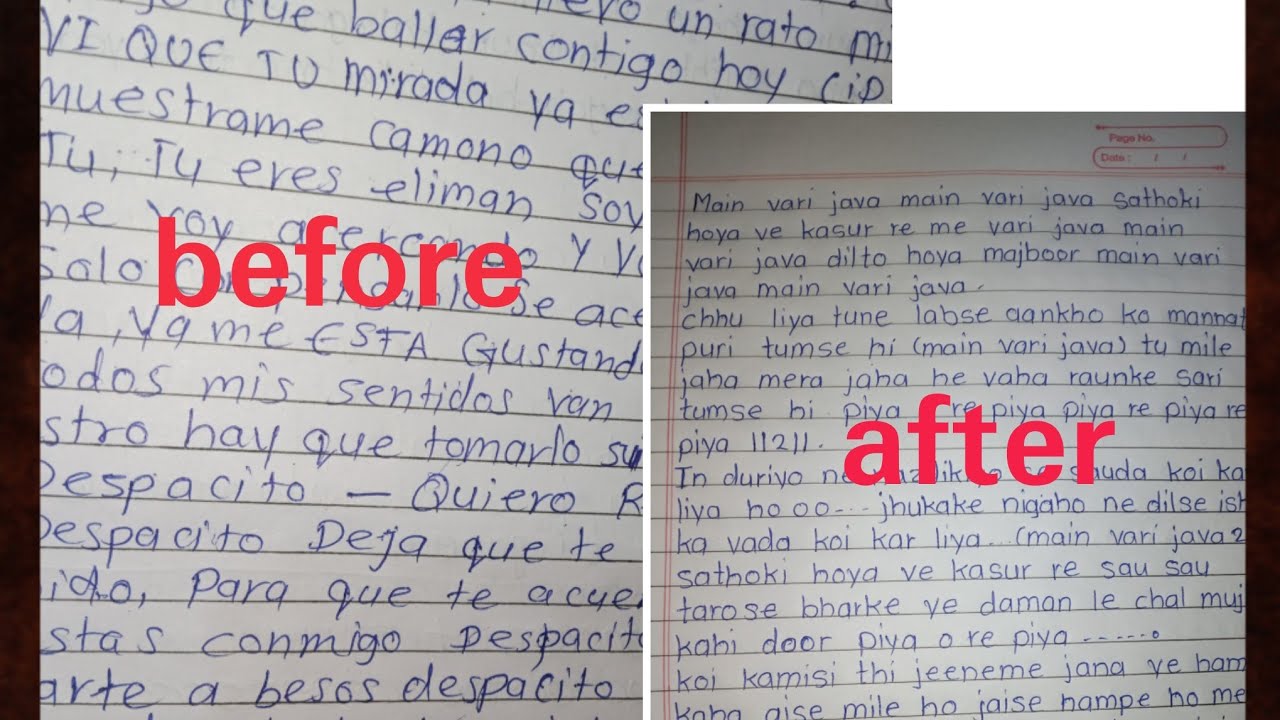 que ballar contigo hoy
VI QUE TU mirada ya
muestrame camono que
TU, TU eres eliman soy
me voy acercando Y
Solo
la, Ya me ESTA Gustand
odos mis sentidos van
stro hay que tomarlo
Despacito — Quiero R
Despacito Deja que te
ido, Para que te acue
stas conmigo Despacito
arte a besos despacito
un rato
before
Page No.
Date : / /
Main vari java main vari java sathoki
hoya ve kasur re me vari java main
vari java dilto hoya majboor main vari
java main vari java.
chhu liya tune labse aankho ko mannat
puri tumse hi (main vari java) tu mile
jaha mera jaha he vaha raunke sari
tumse hi piya re piya piya re piya re
piya ||2||.
In duriyo sauda koi ka
liya ho oo--- jhukake nigaho ne dilse ish
ka vada koi kar liya..(main vari java 2
sathoki hoya ve kasur re sau sau
tarose bharke ye daman le chal muj
kahi door piya o re piya ------.
koi kamisi thi jeeneme jana ye ham
kaha aise mile ho jaise hampe ho me
after